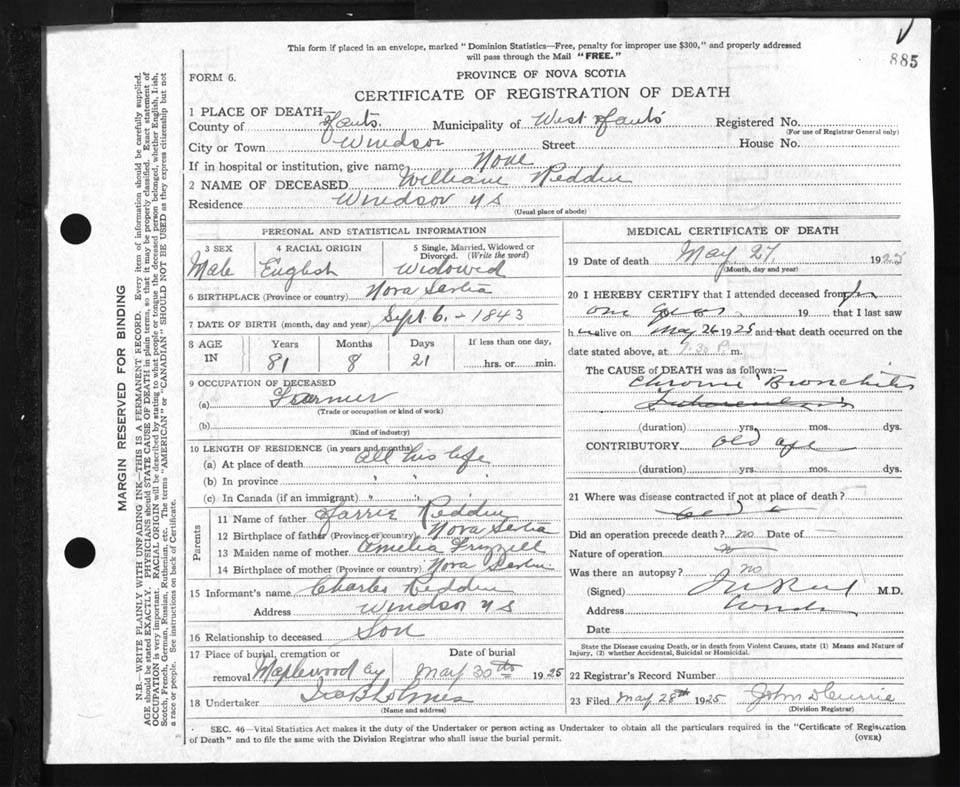 This form if placed in an envelope, marked "Dominion Statistics—Free, penalty for improper use $300," and properly addressed
will pass through the Mail "FREE."
885
FORM 6.
PROVINCE OF NOVA SCOTIA
CERTIFICATE OF REGISTRATION OF DEATH
1 PLACE OF DEATH—
County of Hants. Municipality of West Hants Registered No.
(For use of Registrar General only)
City or Town Windsor Street House No.
If in hospital or institution, give name None
2 NAME OF DECEASED William Redden
Residence Windsor NS
(Usual place of abode)
PERSONAL AND STATISTICAL INFORMATION
3 SEX 4 RACIAL ORIGIN 5 Single, Married, Widowed or
Divorced. (Write the word)
Male English Widowed
6 BIRTHPLACE (Province or country) Nova Scotia
7 DATE OF BIRTH (month, day and year) Sept 6. - 1843
8 AGE IN Years Months Days If less than one day,
81 8 21 hrs. or min.
9 OCCUPATION OF DECEASED
(a) Farmer
(Trade or occupation or kind of work)
(b)
(Kind of industry)
10 LENGTH OF RESIDENCE (in years and months)
(a) At place of death all his life
(b) In province " " "
(c) In Canada (if an immigrant) " " "
Parents
11 Name of father Harris Redden
12 Birthplace of father (Province or country) Nova Scotia
13 Maiden name of mother Amelia Frizzell
14 Birthplace of mother (Province or country) Nova Scotia
15 Informant's name Charles Redden
Address Windsor NS
16 Relationship to deceased Son
17 Place of burial, cremation or Date of burial
removal Maplewood Cy May 30th 1925
18 Undertaker Ira B Holmes
(Name and address)
MEDICAL CERTIFICATE OF DEATH
19 Date of death May 27, 1925
(Month, day and year)
20 I HEREBY CERTIFY that I attended deceased from for
one 19 that I last saw
h alive on May 26 1925 and that death occurred on
date stated above, at 7.30 P. m.
The CAUSE of DEATH was as follows:—
Chronic Bronchitis
(duration) yrs. mos. dys.
CONTRIBUTORY old age
(duration) yrs. mos. dys.
21 Where was disease contracted if not at place of death?
Did an operation precede death? no Date of —
Nature of operation
Was there an autopsy? no
(Signed) M.D.
Address Windsor
Date
State the Disease causing Death, or in death from Violent Causes, state (1) Means and Nature of
Injury, (2) whether Accidental, Suicidal or Homicidal.
22 Registrar's Record Number
23 Filed May 28th 1925 John D Currie
(Division Registrar)
SEC. 46—Vital Statistics Act makes it the duty of the Undertaker or person acting as Undertaker to obtain all the particulars required in the "Certificate of Registration
of Death" and to file the same with the Division Registrar who shall issue the burial permit. (OVER)
MARGIN RESERVED FOR BINDING
N.B.—WRITE PLAINLY WITH UNFADING INK—THIS IS A PERMANENT RECORD. Every item of information should be carefully supplied.
AGE should be stated EXACTLY. PHYSICIANS should STATE CAUSE OF DEATH in plain terms, so that it may be properly classified. Exact statement of
OCCUPATION is very important. RACIAL ORIGIN will be described by stating to what people or tongue the deceased person belonged, whether English, Irish,
Scotch, French, German, Russian, Ruthenian, etc. The terms "AMERICAN" or "CANADIAN" SHOULD NOT BE USED as they express citizenship but not
a race or people. See instructions on back of Certificate.